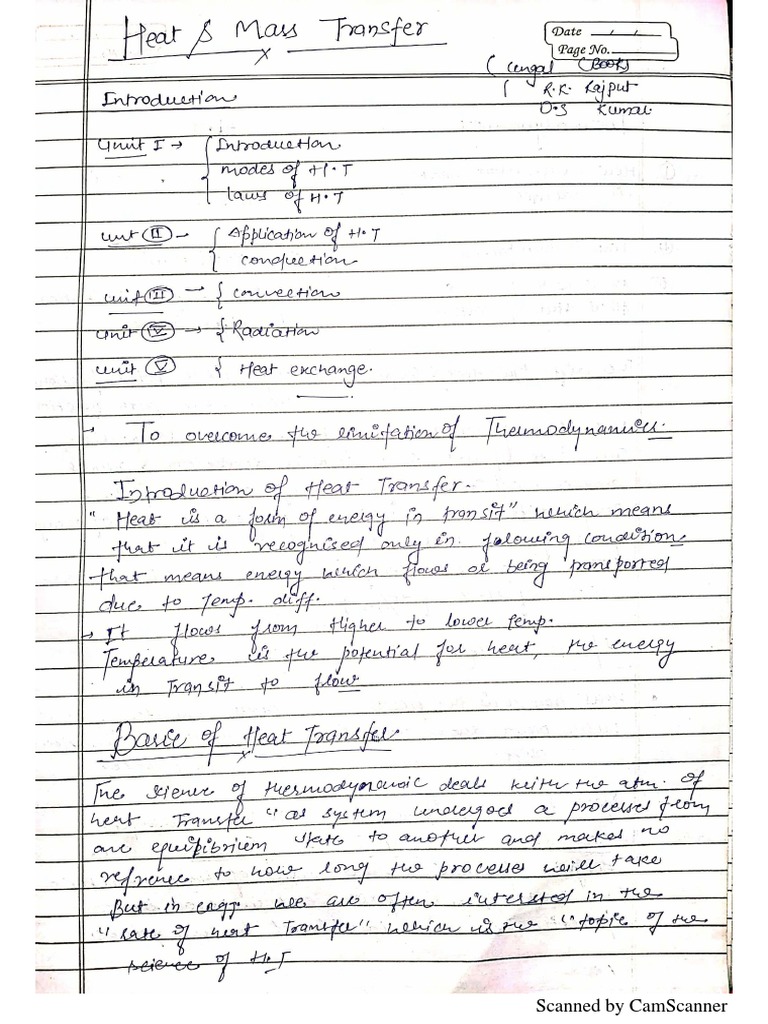 Heat & Mass Transfer
Date / /
Page No.
( Cengal (Book)
( R.K. Rajput
D.S Kumar
Introduction
Unit I → { Introduction
modes of H.T
laws of H.T
unit II - { Application of H.T
conduction
unit III → { convection
unit IV → { Radiation
unit V { Heat exchange.
→ To overcome the limitation of Thermodynamics.
Introduction of Heat Transfer.
" Heat is a form of energy in transit" which means
that it is recognised only in following condition
that means energy which flows or being transported
due to Temp. diff.
→ It flows from Higher to lower temp.
Temperature is the potential for heat, the energy
in Transit to flow
Basic of Heat Transfer
The science of thermodynamic deals with the atm. of
heat Transfer "as system undergoes a processes from
one equilibrium state to another and makes no
refrence to how long the processes will take
But in engg we are often interested in the
"rate of heat Transfer" which is the "topic of the
science of H.T
Scanned by CamScanner